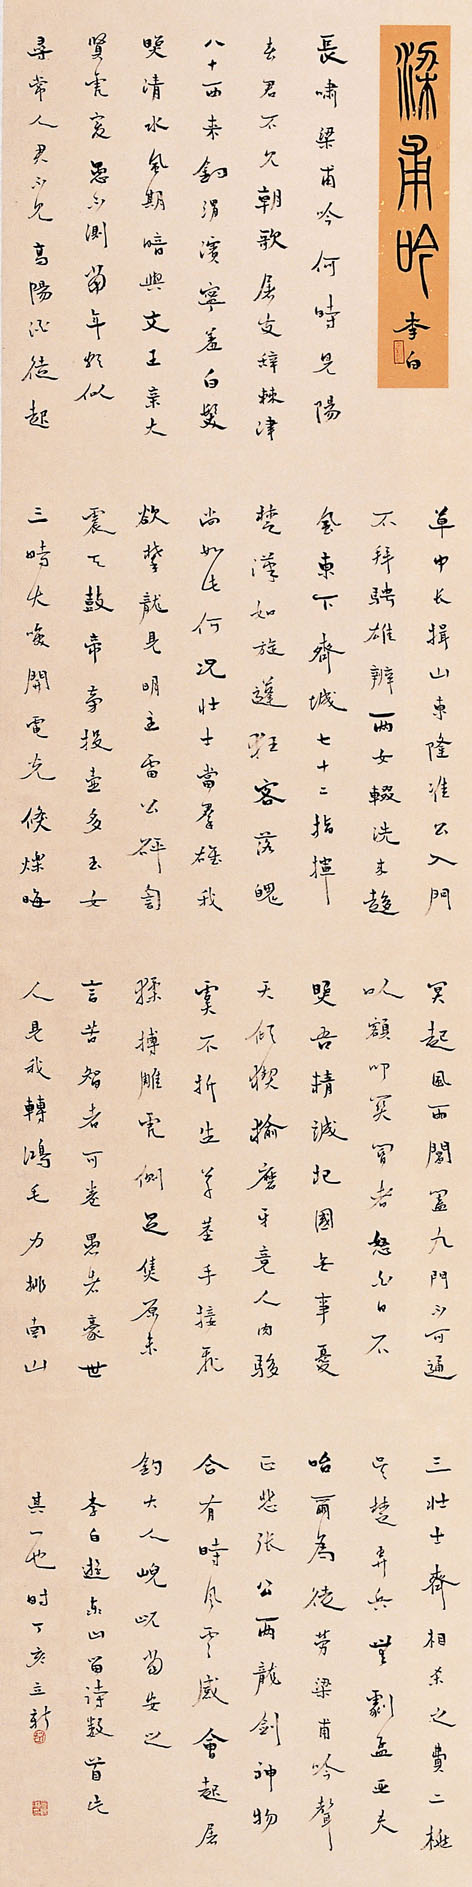 梁甫吟
李白
長嘯梁甫吟何時見陽
春君不見朝歌屠叟辭棘津
八十西來釣渭濱寧羞白髮
暎清水風期暗與文王親大
賢虎變愚不測當年頗似
尋常人君不見高陽酒徒起
草中長揖山東隆准公入門
不拜騁雄辯兩女輟洗來趨
風東下齊城七十二指揮
楚漢如旋蓬狂客落魄
尚如此何況壯士當羣雄我
欲攀龍見明主雷公砰訇
震天鼓帝旁投壺多玉女
三時大笑開電光倏爍晦
冥起風雨閶闔九門不可通
以額叩關閽者怒白日不
暎吾精誠杞國無事憂
天傾猰貐磨牙競人肉騶
虞不折生草莖手接飛
猱搏雕虎側足焦原未
言苦智者可卷愚者豪世
人見我轉鴻毛力排南山
三壯士齊相殺之費二桃
吳楚弄兵無劇孟亞夫
咍爾為徒勞梁甫吟聲
正悲張公兩龍劍神物
合有時風雲感會起屠
釣大人峴屼當安之
李白遊泰山留詩數首此
其一也時丁亥立新